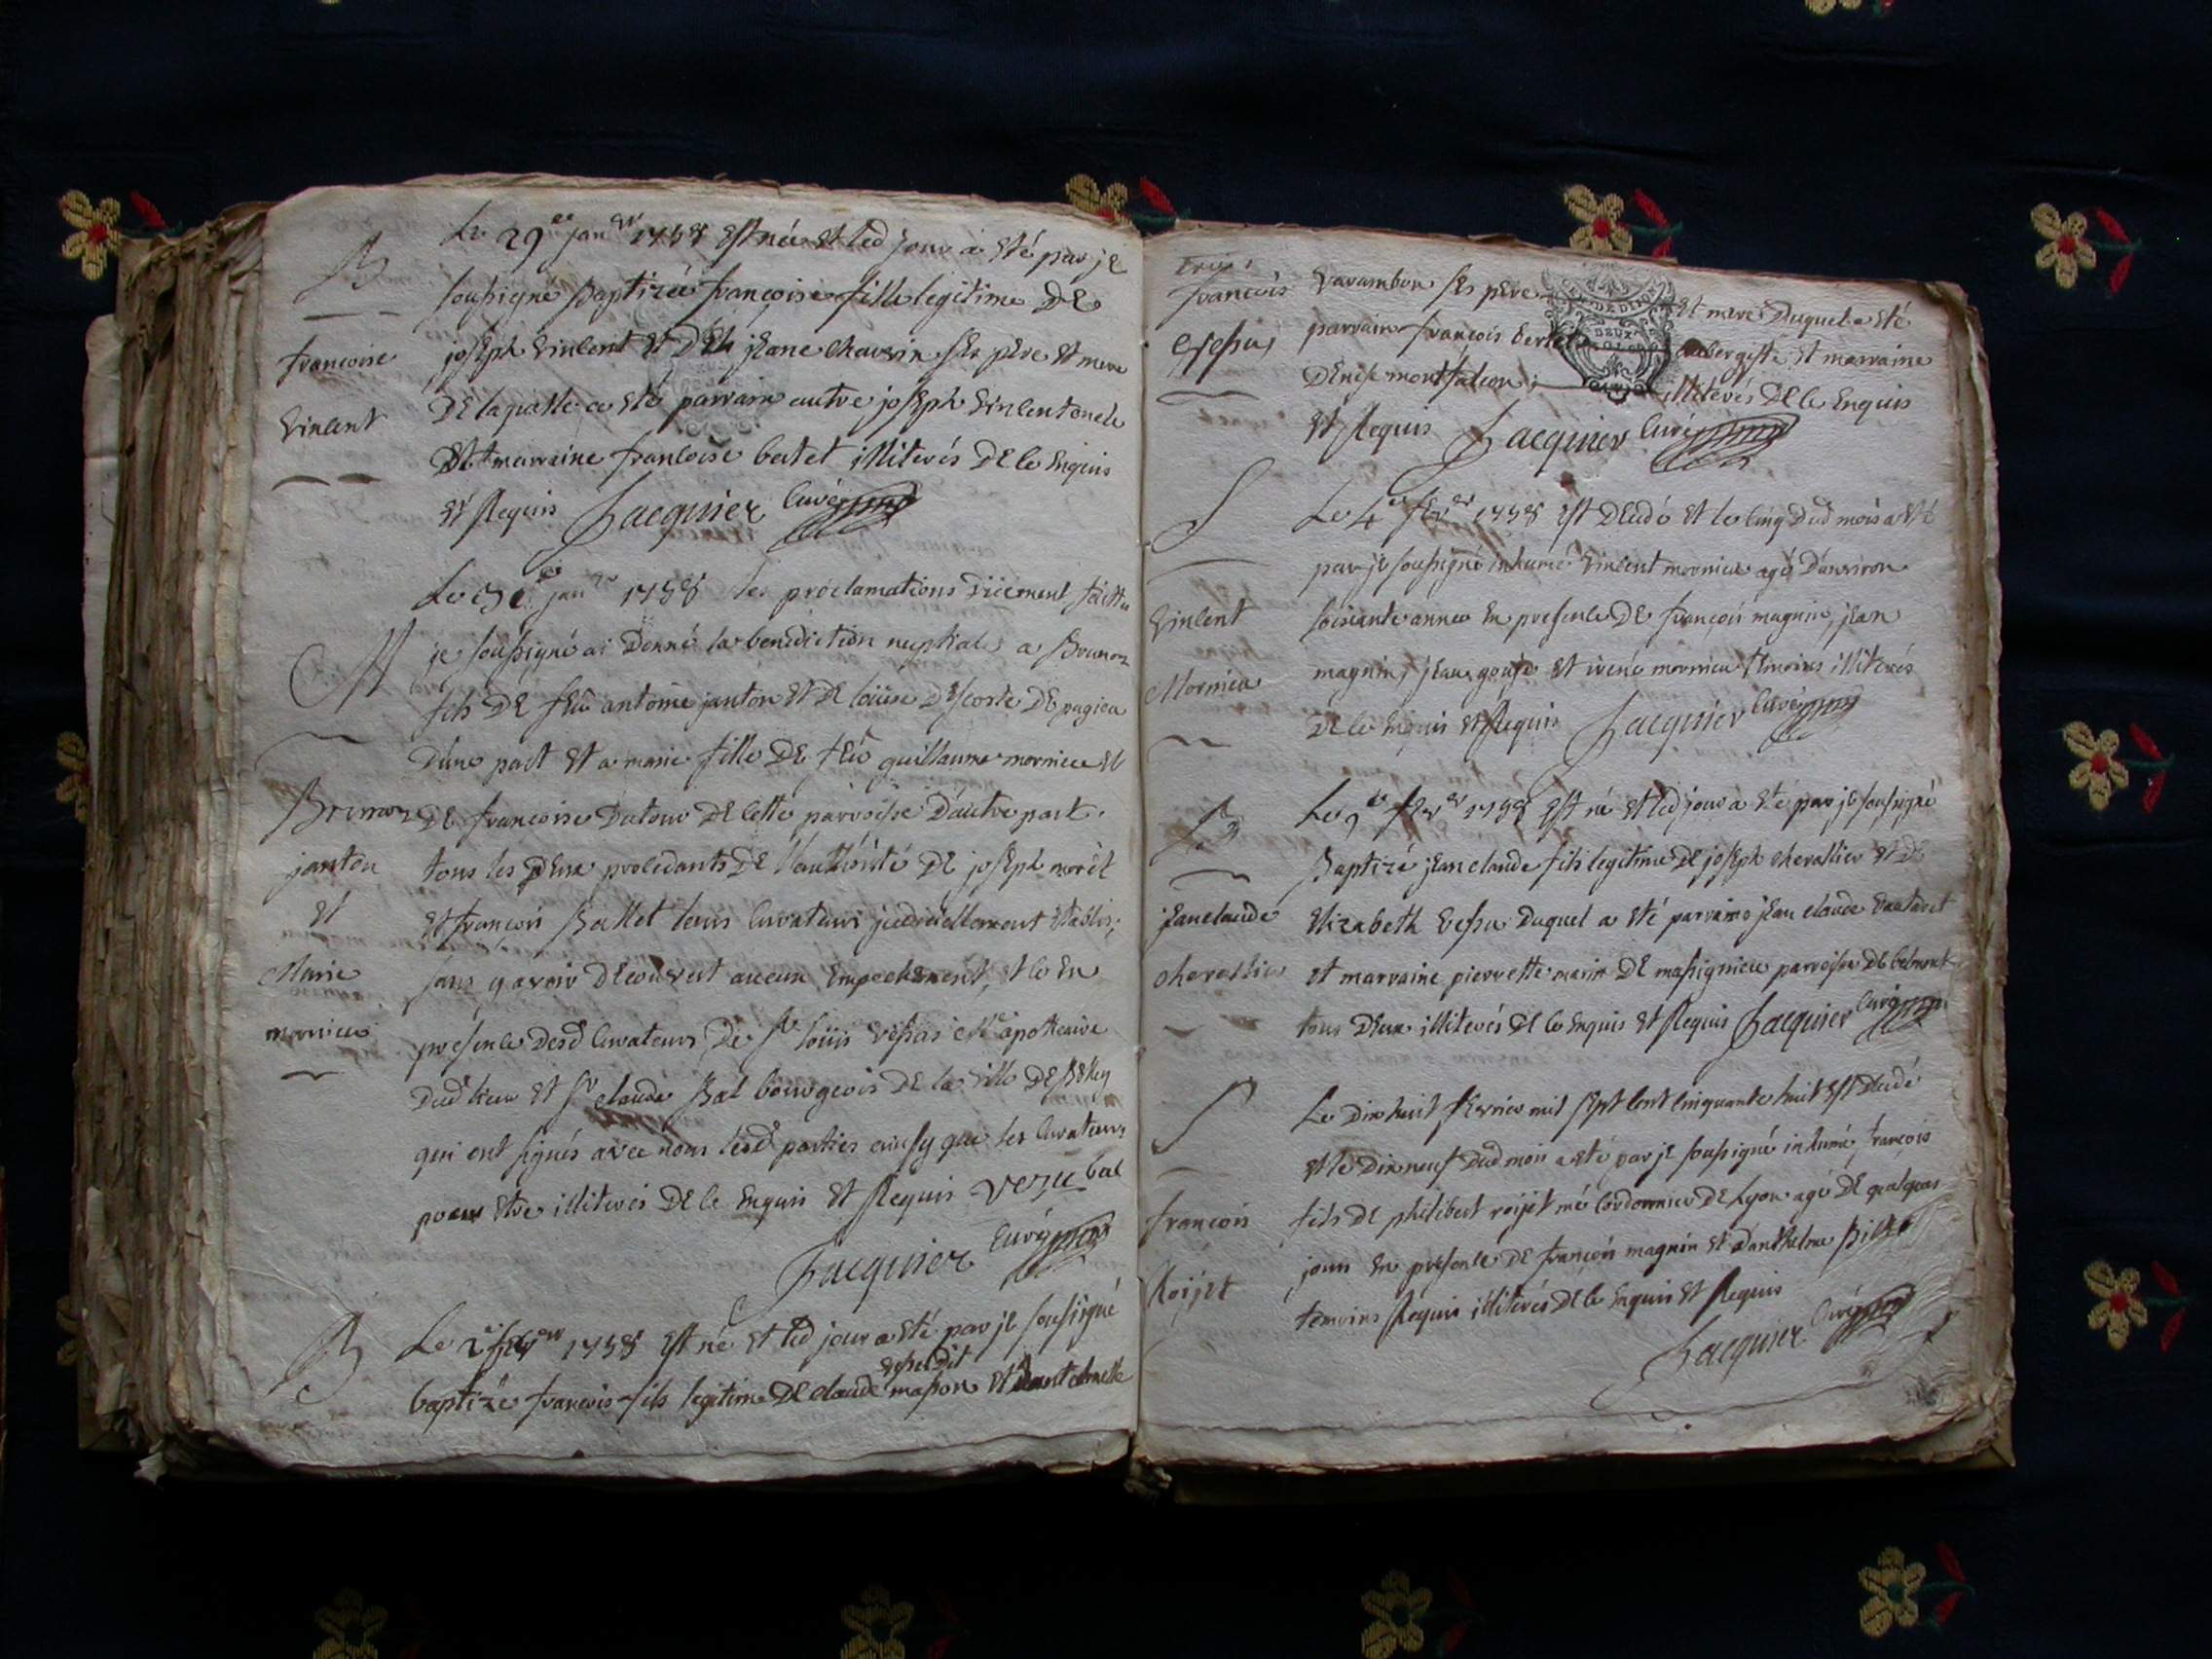 B
françoise
Vincent
Le 29e janer 1758 est née et led jour a été par je
soussigné Baptizée françoise fille legitime de
joseph Vincent et de jeane chavrin ses père et mere
De laquelle a été parrain autre joseph Vincent oncle
et marraine françoise bertet illiterés de ce enquis
et Requis Jacquier Curé
M
Brunon
janton
et
Marie
mornieu
Le 31e janer 1758 les proclamations düement faittes
je soussigné ai Donné la benediction nuptiale a Brunon
fils de feu antoine janton et de loüise Descoste De pugieu
D'une part et a marie fille de feu guillaume mornieu et
de françoise Dutour de cette parroisse D'autre part.
tous les deux procedants de l'authorité de joseph morêt
et françois Ballet leurs Curateurs judiciellement établis;
sans y avoir Decouvert aucun Empechement, et ce en
presence desd Curateurs De Sr loüis apoticaire
dud lieu et Sr claude Bal bourgeois de la ville de Belley
qui ont signés avec nous lesd parties ainsy que les Curateurs
pour etre illiterés de ce enquis et Requis bal
Jacquier Curé
B
Le 2e fever 1758 est né et led jour a été par je soussigné
baptizé françois fils legitime de claude vessu dit masson et d'antelmette
françois
vessu
Varambon ses père et mere Duquel a été
parrain françois bertet aubergiste et marraine
Denise montfalcon; illiterés de ce enquis
et Requis Jacquier Curé
S
Vincent
Mornieu
Le 4e fever 1758 est Decedé et le cinq dud mois a été
par je soussigné inhumé Vincent mornieu agé D'environ
soixante annes en presence de françois magnin, jean
magnin, jean gouje et irené mornieu temoins illiterés
de ce enquis et Requis Jacquier Curé
B
jean claude
chevallier
Le 9e fever 1758 est né et led jour a été par je soussigné
Baptizé jean claude fils legitime de joseph chevallier et de
Elizabeth vessu Duquel a été parrain jean claude
et marraine pierrette marin de massignieu parroisse de belmont
tous deux illiterés de ce enquis et Requis Jacquier Curé
S
françois
Roijet
Le Dix huit fevrier mil sept cent cinquante huit est decedé
et le Dix neuf dud mois a été par je soussigné inhumé, françois
fils de philibert roijet mé cordonnier de Lyon agé de quelques
jours en presence de françois magnin et d'anthelme Billet
temoins Requis illiterés de ce enquis et Requis
Jacquier Curé